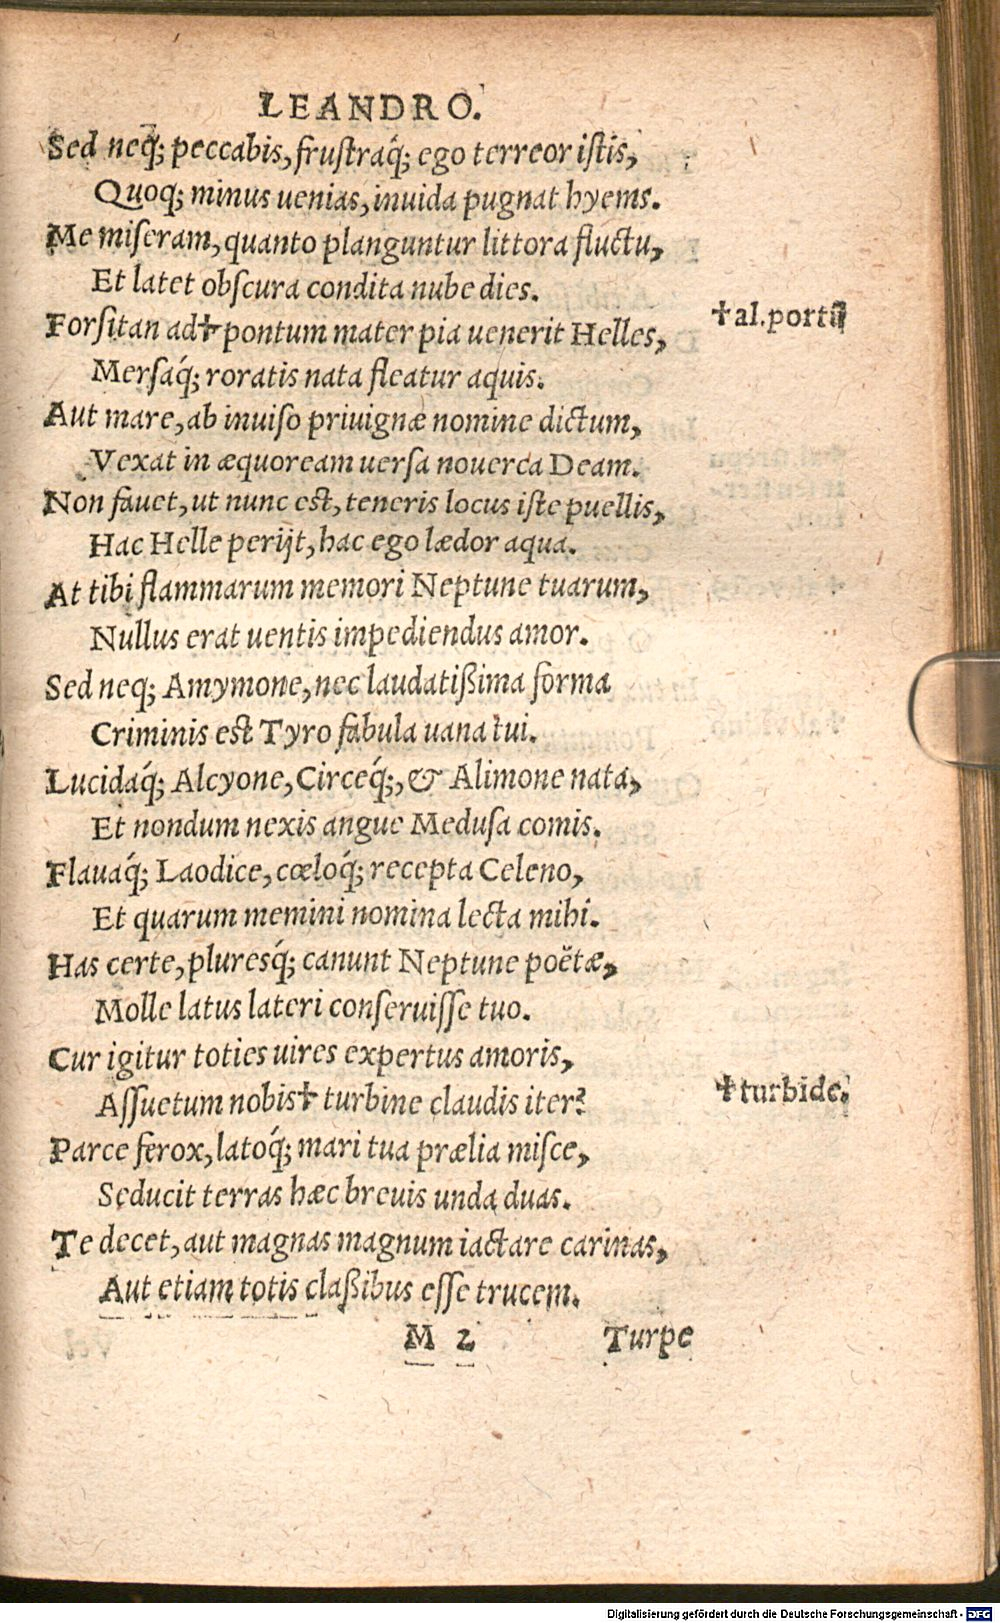 LEANDRO.
Sed neq; peccabis, frustraq́; ego terreor istis,
Quoq; minus uenias, inuida pugnat hyems.
Me miseram, quanto planguntur littora fluctu,
Et latet obscura condita nube dies.
Forsitan ad✝pontum mater pia uenerit Helles,
✝al.portū
Mersaq́; roratis nata fleatur aquis.
Aut mare, ab inuiso priuignæ nomine dictum,
Vexat in æquoream uersa nouerca Deam.
Non fauet, ut nunc est, teneris locus iste puellis,
Hac Helle perijt, hac ego lædor aqua.
At tibi flammarum memori Neptune tuarum,
Nullus erat uentis impediendus amor.
Sed neq; Amymone, nec laudatißima forma
Criminis est Tyro fabula uana tui.
Lucidaq́; Alcyone, Circeq́;, & Alimone nata,
Et nondum nexis angue Medusa comis.
Flauaq́; Laodice, cœloq́; recepta Celeno,
Et quarum memini nomina lecta mihi.
Has certe, pluresq́; canunt Neptune poëtæ,
Molle latus lateri conseruisse tuo.
Cur igitur toties uires expertus amoris,
Assuetum nobis✝ turbine claudis iter?
✝turbide.
Parce ferox, latoq́; mari tua prælia misce,
Seducit terras hæc breuis unda duas.
Te decet, aut magnas magnum iactare carinas,
Aut etiam totis claßibus esse trucem.
M 2 Turpe
Digitalisierung gefördert durch die Deutsche Forschungsgemeinschaft - DFG